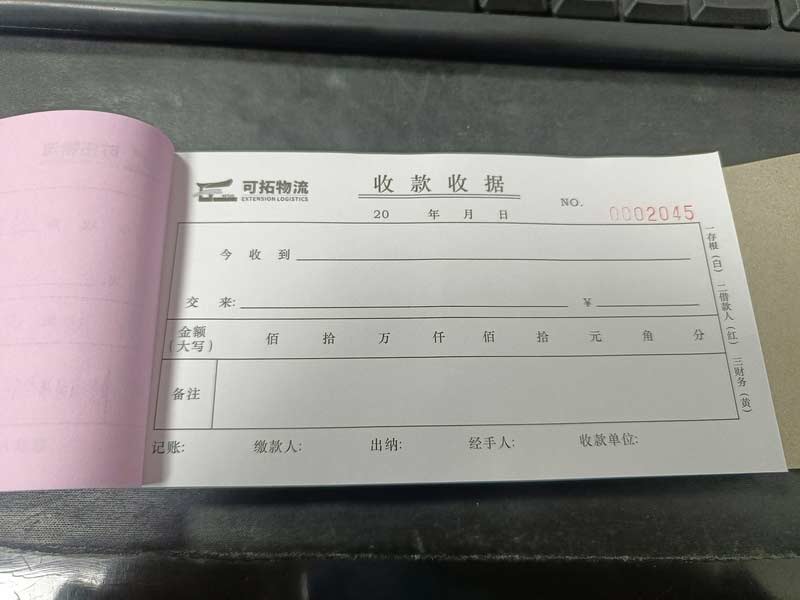 可拓物流
EXTENSION LOGISTICS
收款收据
20 年 月 日
NO. 0002045
今收到
交来: ¥
金额
(大写) 佰 拾 万 仟 佰 拾 元 角 分
备注
记账: 缴款人: 出纳: 经手人: 收款单位:
一存根(白) 二借款人(红) 三财务(黄)